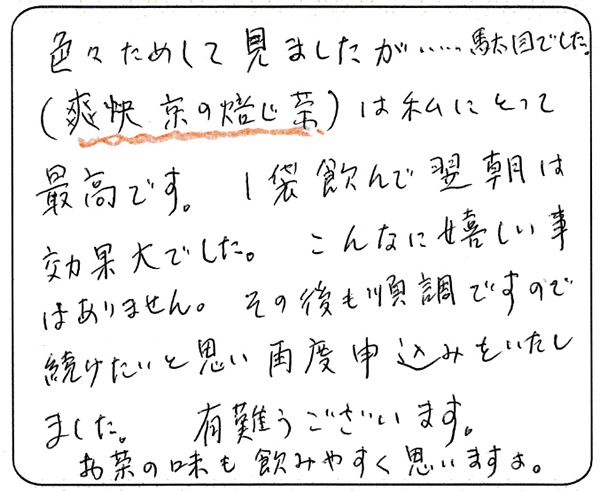 色々ためして見ましたが……駄目でした。
(爽快 京の焙じ茶)は私にとって
最高です。1袋飲んで翌朝は
効果大でした。こんなに嬉しい事
はありません。その後も順調ですので
続けたいと思い再度申込みをいたし
ました。有難うございます。
お茶の味も飲みやすく思いますよ。